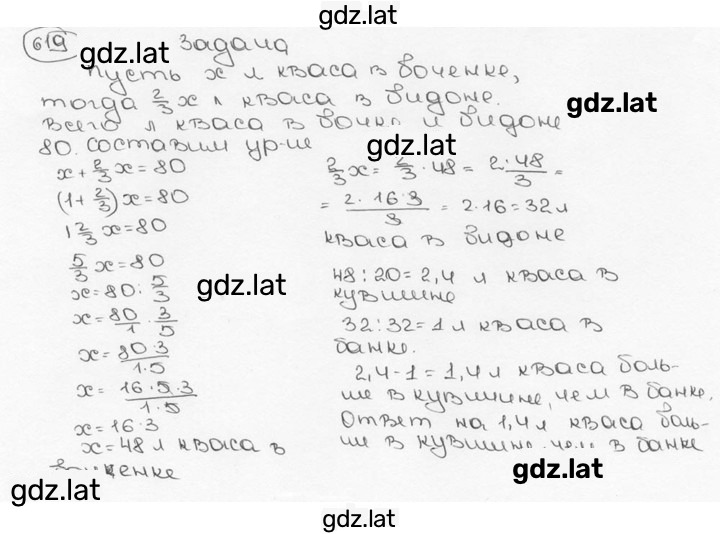 gdz.lat
619 Задача
gdz.lat
Пусть x л кваса в боченке,
тогда 2/3 x л кваса в бидоне.
gdz.lat
всего л кваса в бочк и бидоне
80. составим ур-ие
gdz.lat
x + 2/3 x = 80
(1 + 2/3) x = 80
1 2/3 x = 80
5/3 x = 80
x = 80 : 5/3
x = 80/1 · 3/5
x = 80·3/1·5
x = 16·5·3/1·5
x = 16·3
x = 48 л кваса в
ченке
gdz.lat
2/3 x = 2/3 · 48 = 2·48/3 =
= 2·16·3/3 = 2·16 = 32 л
кваса в бидоне
gdz.lat
48 : 20 = 2,4 л кваса в
кувшине
32 : 32 = 1 л кваса в
банке.
2,4 - 1 = 1,4 л кваса боль-
ше в кувшине, чем в банке.
Ответ на 1,4 л кваса боль-
ше в кувшин в банке
gdz.lat
gdz.lat